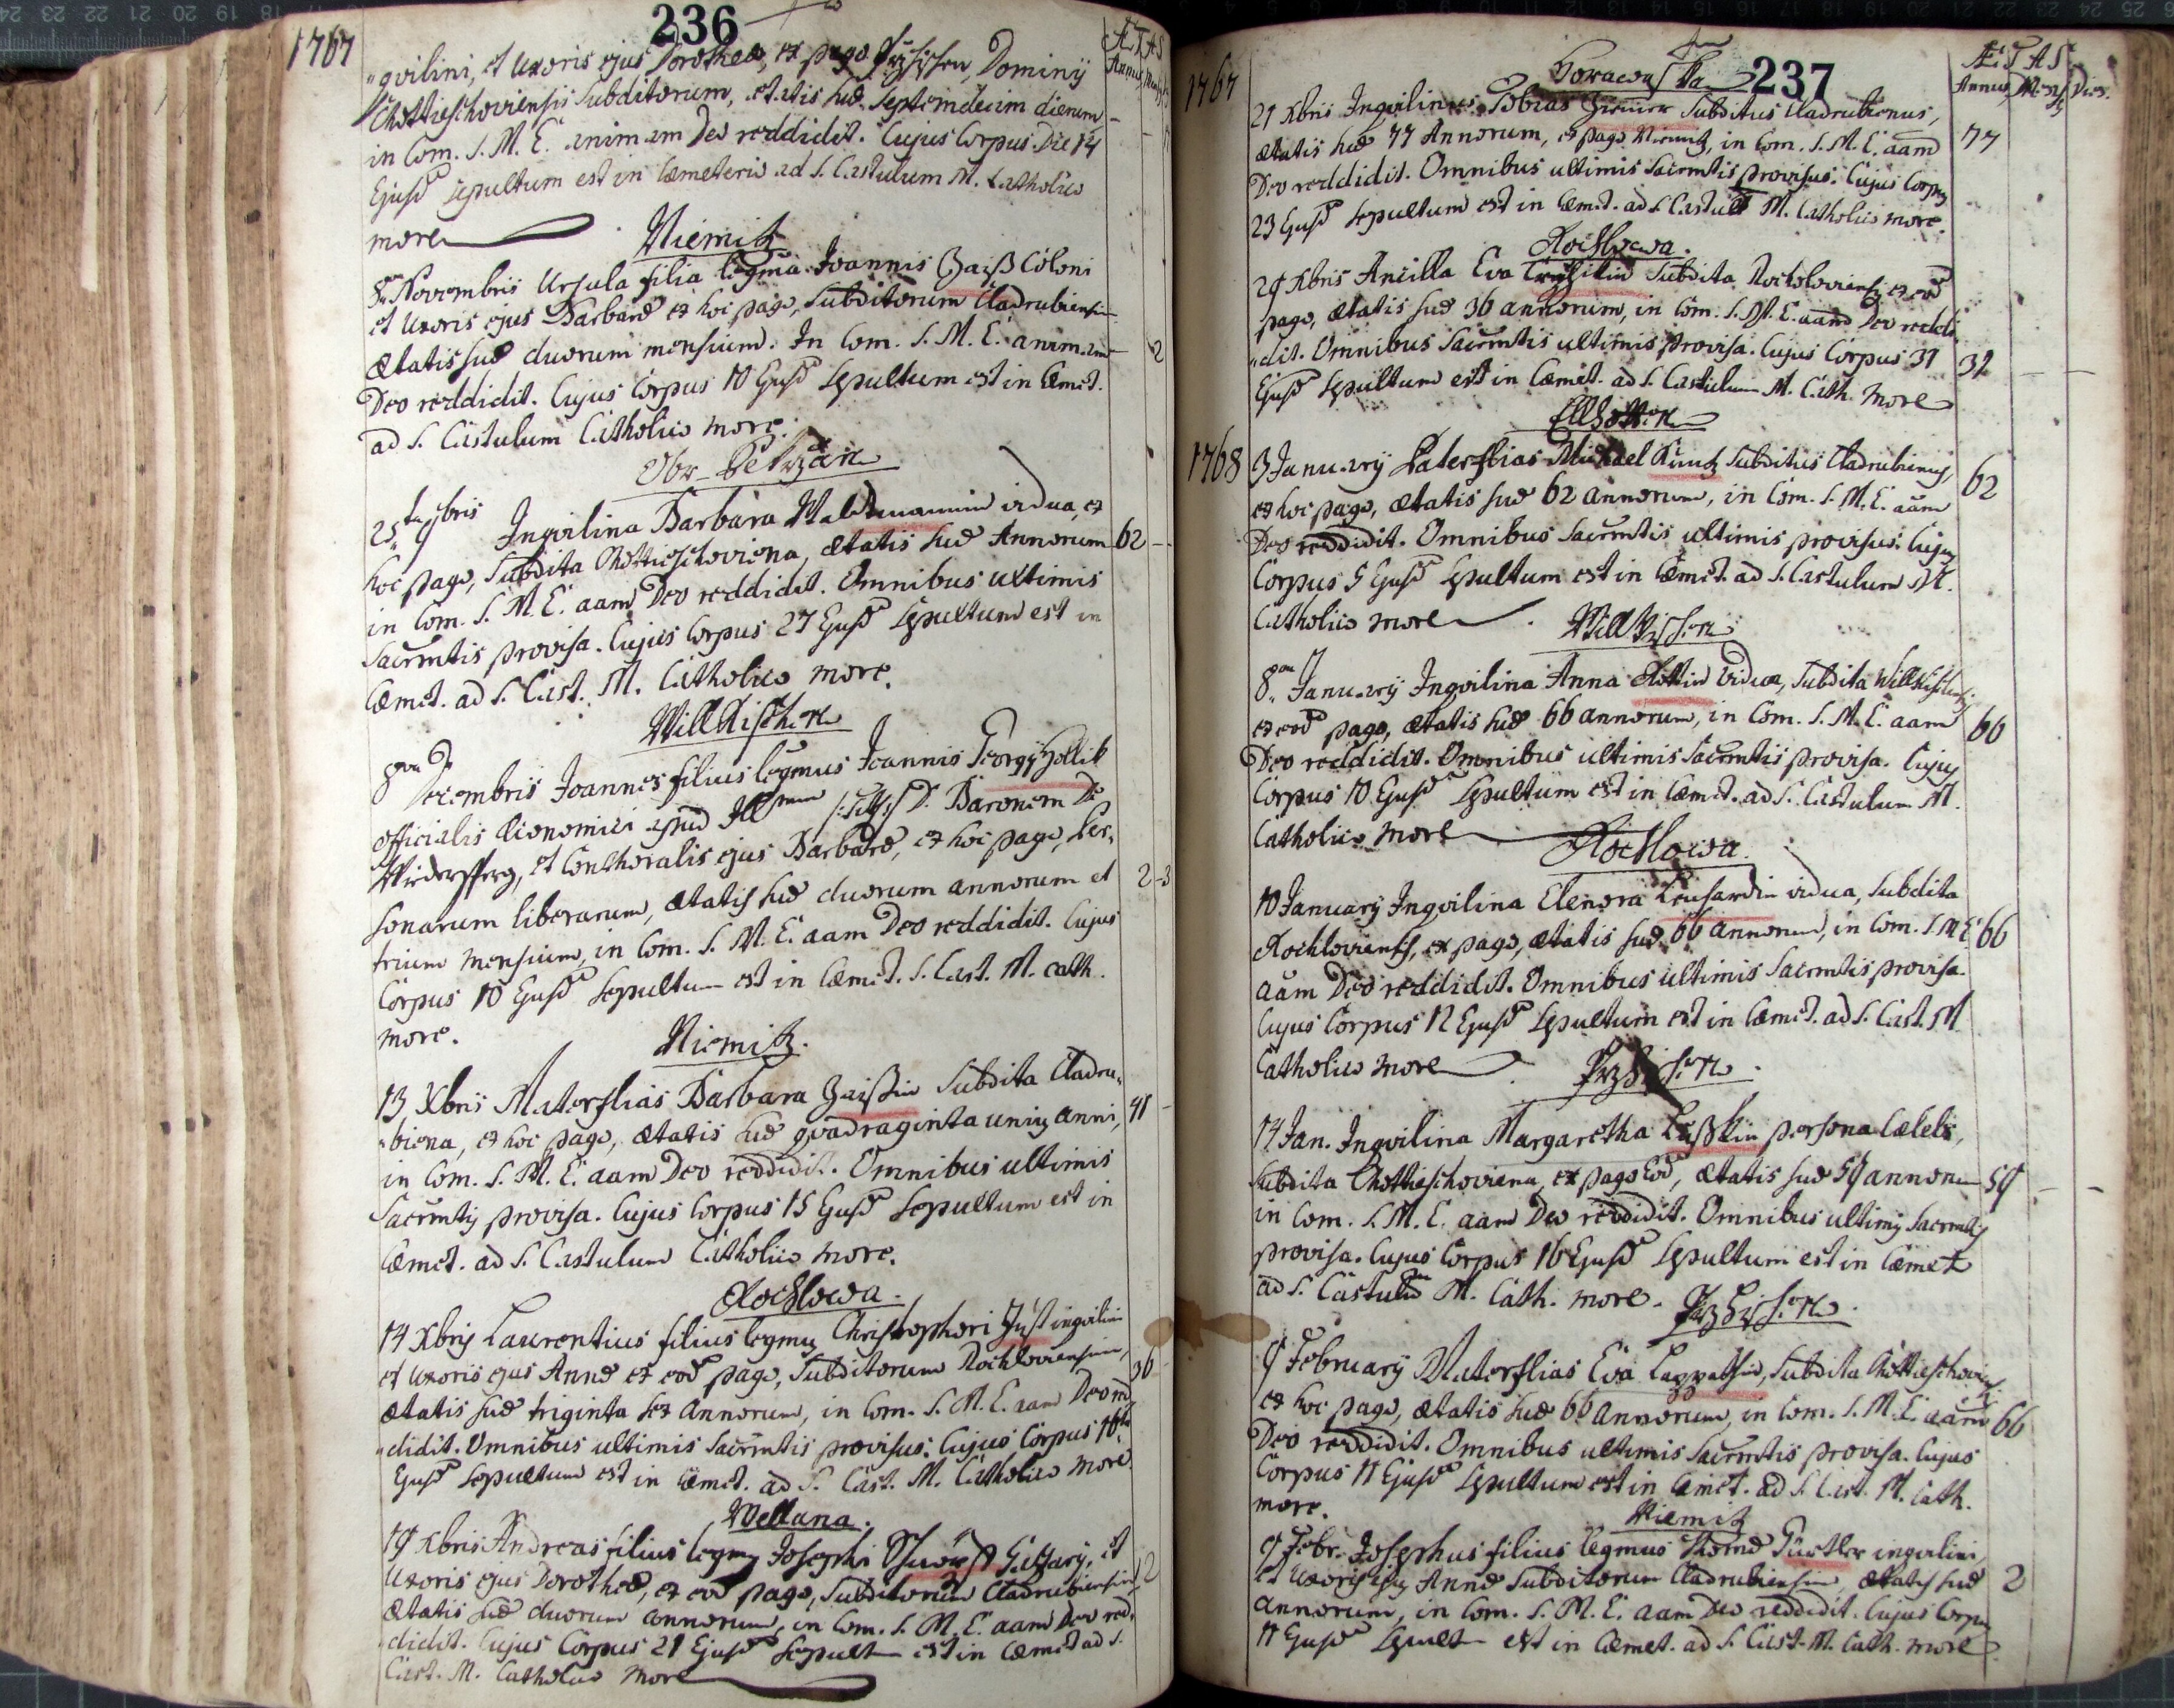 236
1767
ÆTAS
Annus Mens
"qvilini, et Uxoris ejus Dorotheæ, ex pago Dominÿ
Chottieschoviensis Subditorum, ætatis suæ Septemdecim dierum
in Com. S. M. E. animam Deo reddidit. Cujus Corpus Die 14
Ejusd Sepultum est in Cæmeterio ad S. Castulum M. Catholico
more
Niemitz
8va Novembris Ursula filia legma Joannis Zaiß Coloni
et Uxoris ejus Barbaræ ex hoc pago, Subditorum Cladrubiensium
ætatis suæ duorum mensium. In Com. S. M. E. animam
2
Deo reddidit. Cujus Corpus 10 Ejusd Sepultum est in Cæmet.
ad S. Castulum Catholico more.
25ta 9bris Inqvilina Barbara Waldtmannin vidua, ex
hoc pago, Subdita Chottieschoviena, ætatis suæ Annorum 62
in Com. S. M. E. aam Deo reddidit. Omnibus ultimis
Sacrmtis provisa. Cujus Corpus 27 Ejusd Sepultum est in
Cæmet. ad S. Cast. M. Catholico more.
Willkischen
8va Decembris Joannes filius legmus Joannis Georgÿ Hollik
officialis Œconomici apud D. Baronem De
Widersperg, et Conthoralis ejus Barbaræ, ex hoc pago, Per-
sonarum liberarum, ætatis suæ duorum annorum et 2 3
trium mensium, in Com. S. M. E. aam Deo reddidit. Cujus
Corpus 10 Ejusd Sepultum est in Cæmet. S. Cast. M. cath.
more.
Niemitz.
13 Xbris Materflias Barbara Zaißin Subdita Cladru-
"biena, ex hoc pago, ætatis suæ qvadraginta unius anni, 41
in Com. S. M. E. aam Deo reddidit. Omnibus ultimis
Sacrmtis provisa. Cujus Corpus 15 Ejusd Sepultum est in
Cæmet. ad S. Castulum Catholico more.
Rochlowa.
14 Xbris Laurentius filius legmus Christophori Just inqvilini
et Uxoris ejus Annæ ex eod pago, Subditorum Rochloviensium, 36
ætatis suæ triginta sex Annorum, in Com. S. M. E. aam Deo red
"didit. Omnibus ultimis Sacrmtis provisus. Cujus Corpus 16ta
Ejusd Sepultum est in Cæmet. ad S. Cast. M. Catholico more.
Wellana.
19 Xbris Andreas filius legmus Josephi et
Uxoris ejus Dorotheæ, ex eod pago, Subditorum Cladrubiensium 2
ætatis suæ duorum annorum, in Com. S. M. E. aam Deo red-
"didit. Cujus Corpus 21 Ejusd Sepult est in Cæmet ad S.
Cast. M. Catholico more
237
1767
ÆTAS
Annus Mens Dies
21 Xbris Inqvilinus Tobias Subditus Cladrubienus,
ætatis suæ 77 Annorum, ex pago Niemitz, in Com. S. M. E. aam 77
Deo reddidit. Omnibus ultimis Sacrmtis provisus. Cujus Corpus
23 Ejusd Sepultum est in Cæmet. ad S. Castul M. Catholico more.
Rochlowa.
29 Xbris Ancilla Eva Subdita Rochloviensis ex eod
pago, ætatis suæ 36 annorum, in Com. S. M. E. aam Deo reddi-
"dit. Omnibus Sacrmtis ultimis provisa. Cujus Corpus 31
Ejusd Sepultum est in Cæmet. ad S. Castulum M. Cath. more
Ellhotten
1768
3 Januarÿ Paterflias Michael Subditus Cladrubienus, 62
ex hoc pago, ætatis suæ 62 annorum, in Com. S. M. E. aam
Deo reddidit. Omnibus Sacrmtis ultimis provisus. Cujus
Corpus 5 Ejusd Sepultum est in Cæmet. ad S. Castulum M.
Catholico more
Willkischen
8va Januarÿ Inqvilina Anna vidua, Subdita Willkisch
ex eod pago, ætatis suæ 66 annorum, in Com. S. M. E. aam 66
Deo reddidit. Omnibus ultimis Sacrmtis provisa. Cujus
Corpus 10 Ejusd Sepultum est in Cæmet. ad S. Castulum M.
Catholico more
Rochlowa.
10 Januarÿ Inqvilina Elenora vidua, Subdita
Rochloviensis, ex pago, ætatis suæ 66 annorum, in Com. S M E 66
aam Deo reddidit. Omnibus ultimis Sacrmtis provisa.
Cujus Corpus 12 Ejusd Sepultum est in Cæmet. ad S. Cast. M
Catholico more
14 Jan. Inqvilina Margaretha persona Cælebs,
Subdita Chottieschoviena, ex pago Eod, ætatis suæ 59 annorum 59
in Com. S. M. E. aam Deo reddidit. Omnibus ultimis Sacrmtis
provisa. Cujus Corpus 16 Ejusd Sepultum est in Cæmet
ad S. Castulum M. Cath. more.
9 Februarÿ Materflias Eva Subdita Chottieschovien
ex hoc pago, ætatis suæ 66 annorum, in Com. S. M. E. aam 66
Deo reddidit. Omnibus ultimis Sacrmtis provisa. Cujus
Corpus 11 Ejusd Sepultum est in Cæmet. ad S. Cast. M. Cath.
more.
Niemitz
9 Febr. Josephus filius legmus Thomæ inqvilini,
et Uxoris ejus Annæ Subditorum Cladrubiensium, ætatis suæ 2
annorum, in Com. S. M. E. aam Deo reddidit. Cujus Corpus
11 Ejusd Sepult est in Cæmet. ad S. Cast. M. Cath. more